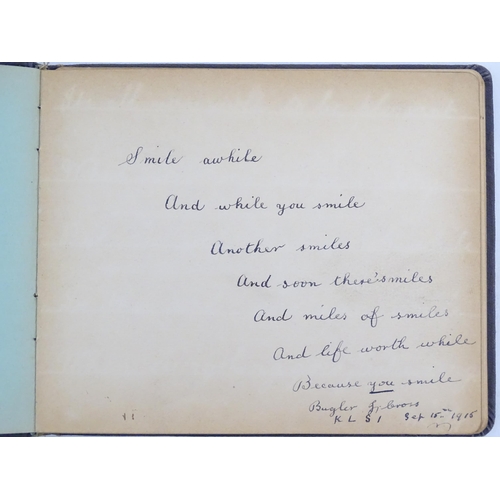 Smile awhile
And while you smile
Another smiles
And soon there's smiles
And miles of smiles
And life worth while
Because you smile
Bugler Cross
K L S I Sep 15th 1915